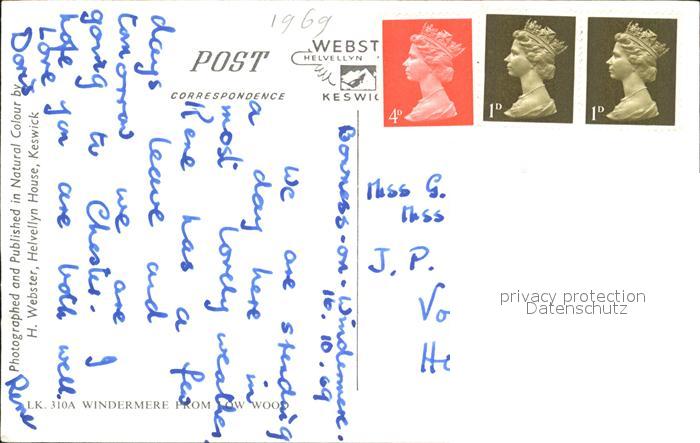 1969
POST
CORRESPONDENCE
WEBST
HELVELLYN
KESWIC
4D
1D
1D
Bowness-on-Windermere.
16.10.69
We are spending
a day here in
most lovely weather.
Rene has a few
days leave and
tomorrow we are
going to Chester. I
hope you are both well.
Love
Doris
Rene
Miss G.
Miss
J. P.
Vo
He
privacy protection
Datenschutz
Photographed and Published in Natural Colour by
H. Webster, Helvellyn House, Keswick
LK. 310A WINDERMERE FROM LOW WOOD